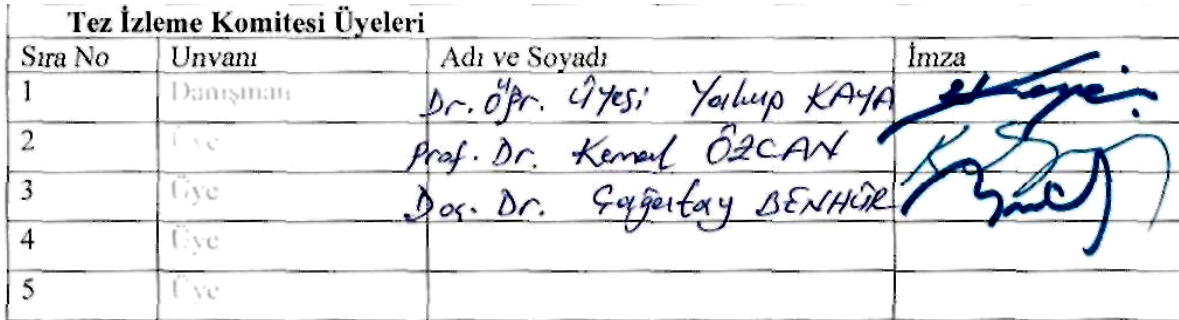 Tez İzleme Komitesi Üyeleri
Sıra No Unvanı Adı ve Soyadı İmza
1 Danışman Dr. Öğr. Üyesi Yakup KAYA
2 Üye Prof. Dr. Kemal ÖZCAN
3 Üye Doç. Dr. Çağatay BENHÜR
4 Üye
5 Üye